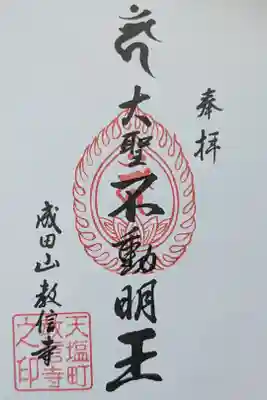 奉拝
大聖不動明王
成田山教信寺
天塩町
教信寺
之印